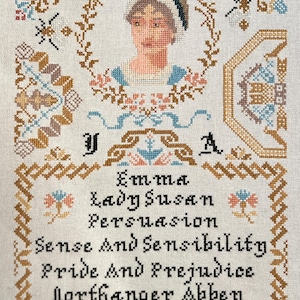 J A
Emma
Lady Susan
Persuasion
Sense And Sensibility
Pride And Prejudice
Northanger Abbey